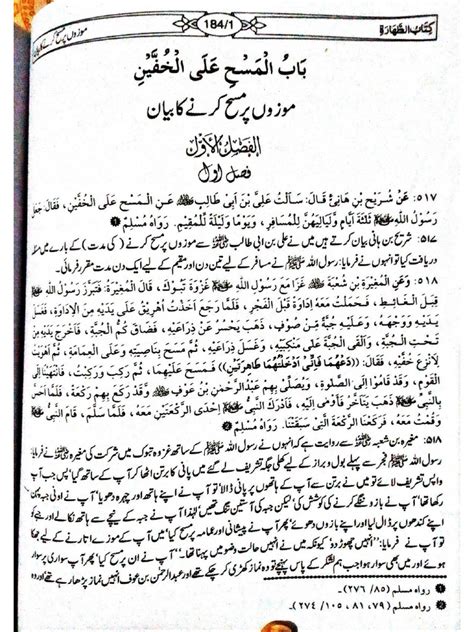 كِتَابُ الطَّهَارَةِ
184/1
موزوں پر مسح کرنے کا بیان
بَابُ الْمَسْحِ عَلَى الْخُفَّيْنِ
موزوں پر مسح کرنے کا بیان
الفَصْلُ الْأَوَّلُ
فصل اول
٥١٧: عَنْ شُرَيْحِ بْنِ هَانِئٍ قَالَ: سَأَلْتُ عَلِيَّ بْنَ أَبِي طَالِبٍ عَنِ الْمَسْحِ عَلَى الْخُفَّيْنِ، فَقَالَ: جَعَلَ
رَسُولُ اللَّهِ ﷺ ثَلَاثَةَ أَيَّامٍ وَلَيَالِيَهُنَّ لِلْمُسَافِرِ، وَيَوْمًا وَلَيْلَةً لِلْمُقِيمِ. رَوَاهُ مُسْلِمٌ ❶
۵۱۷: شریح بن ہانی بیان کرتے ہیں میں نے علی بن ابی طالب سے موزوں پر مسح کرنے ( کی مدت ) کے بارے میں مسئلہ
دریافت کیا تو انہوں نے فرمایا: رسول اللہ ﷺ نے مسافر کے لیے تین دن اور مقیم کے لیے ایک دن مدت مقرر فرمائی۔
٥١٨: عَنِ الْمُغِيرَةِ بْنِ شُعْبَةَ أَنَّهُ غَزَا مَعَ رَسُولِ اللَّهِ ﷺ غَزْوَةَ تَبُوكَ، قَالَ الْمُغِيرَةُ: فَتَبَرَّزَ رَسُولُ اللَّهِ ﷺ
قِبَلَ الْغَائِطِ، فَحَمَلْتُ مَعَهُ إِدَاوَةً قَبْلَ الْفَجْرِ، فَلَمَّا رَجَعَ أَخَذْتُ أُهَرِيقُ عَلَى يَدَيْهِ مِنَ الْإِدَاوَةِ
فَغَسَلَ يَدَيْهِ وَوَجْهَهُ، وَعَلَيْهِ جُبَّةٌ مِّنْ صُوفٍ، ذَهَبَ يَحْسِرُ عَنْ ذِرَاعَيْهِ، فَضَاقَ كُمُّ الْجُبَّةِ، فَأَخْرَجَ يَدَيْهِ مِنْ
تَحْتِ الْجُبَّةِ، وَأَلْقَى الْجُبَّةَ عَلَى مَنْكِبَيْهِ، وَغَسَلَ ذِرَاعَيْهِ، ثُمَّ مَسَحَ بِنَاصِيَتِهِ وَعَلَى الْعِمَامَةِ، ثُمَّ أَهْوَيْتُ
لِأَنْزِعَ خُفَّيْهِ، فَقَالَ: ((دَعْهُمَا فَإِنِّي أَدْخَلْتُهُمَا طَاهِرَتَيْنِ)) فَمَسَحَ عَلَيْهِمَا، ثُمَّ رَكِبَ وَرَكِبْتُ، فَانْتَهَيْنَا إِلَى
الْقَوْمِ، وَقَدْ قَامُوا إِلَى الصَّلٰوةِ، وَيُصَلِّي بِهِمْ عَبْدُ الرَّحْمٰنِ بْنُ عَوْفٍ وَقَدْ رَكَعَ بِهِمْ رَكْعَةً، فَلَمَّا أَحَسَّ
بِالنَّبِيِّ ﷺ ذَهَبَ يَتَأَخَّرُ فَأَوْمَى إِلَيْهِ، فَأَدْرَكَ النَّبِيُّ ﷺ إِحْدَى الرَّكْعَتَيْنِ مَعَهُ، فَلَمَّا سَلَّمَ، قَامَ النَّبِيُّ ﷺ
وَقُمْتُ مَعَهُ، فَرَكَعْنَا الرَّكْعَةَ الَّتِي سَبَقَتْنَا. رَوَاهُ مُسْلِمٌ ❷
۵۱۸: مغیرہ بن شعبہ سے روایت ہے کہ انہوں نے رسول اللہ ﷺ کے ساتھ غزوہ تبوک میں شرکت کی مغیرہ
رسول اللہ ﷺ فجر سے پہلے بول و براز کے لیے کھلی جگہ تشریف لے گئے میں پانی کا برتن اٹھا کر آپ کے ساتھ گیا پس جب آپ
واپس تشریف لائے تو میں نے برتن سے آپ کے ہاتھوں پر پانی ڈالا تو آپ نے اپنے ہاتھ اور چہرہ دھویا‘ آپ نے اونی جبہ
رکھا تھا‘ آپ نے بازو ننگے کرنے کی کوشش کی لیکن جبے کی آستین تنگ تھیں لہٰذا آپ نے جبے کے نیچے سے ہاتھ نکالے اور جبے
اپنے کندھوں پر ڈال لیا اور اپنے بازو دھوئے‘ پھر آپ نے پیشانی اور عمامہ پر مسح کیا‘ پھر میں آپ کے موزے اتارنے کے لیے جھکا
تو آپ نے فرمایا: ”انہیں چھوڑ دو‘ کیونکہ میں نے انہیں حالت وضو میں پہنا تھا۔“ آپ نے ان پر مسح کیا‘ پھر آپ سواری پر سوار
ہوئے اور میں بھی سوار ہوا جب ہم لشکر کے پاس پہنچے تو وہ نماز کھڑی کر چکے تھے اور عبدالرحمن بن عوف انہیں نماز پڑھا رہے تھے
❶ رواه مسلم (٨٥/ ٢٧٦)۔
❷ رواه مسلم (٧٩، ٨١، ١٠٥/ ٢٧٤)۔